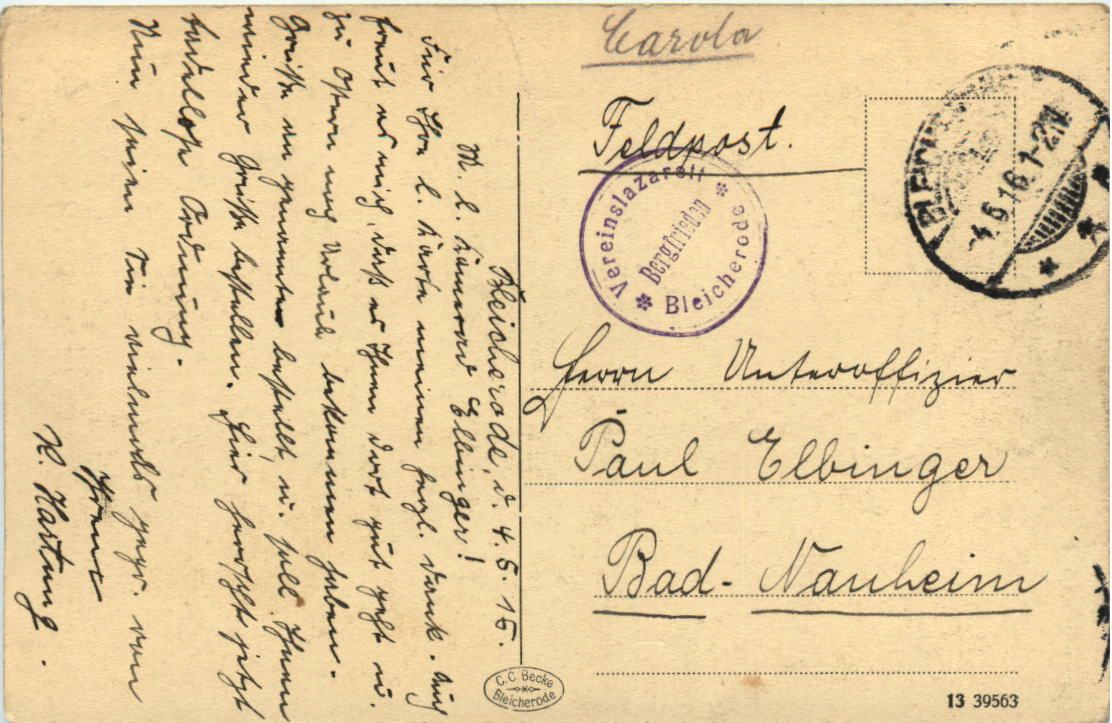 Bleicherode, d. 4.5.16.
M. l. Kamerad Elbinger!
Für Ihre l. Karte meinen herzl. Dank. Auch
freut es mich, daß es Ihnen dort gut geht u.
zu Ostern noch Urlaub bekommen haben.
Grüße an genannten bestellt, u. soll Ihnen
wieder Grüße bestellen. Hier herrscht jetzt
tadellose Ordnung.
Nun seien Sie vielmals gegr. von
Ihrem
K. Hartung.
Carola
Feldpost.
Vereinslazarett
Bergfrieden
Bleicherode
BLEICHERODE
-4.5.16.1-2N.
Herrn Unteroffizier
Paul Elbinger
Bad-Nauheim
C.C. Becke
Bleicherode
13 39563